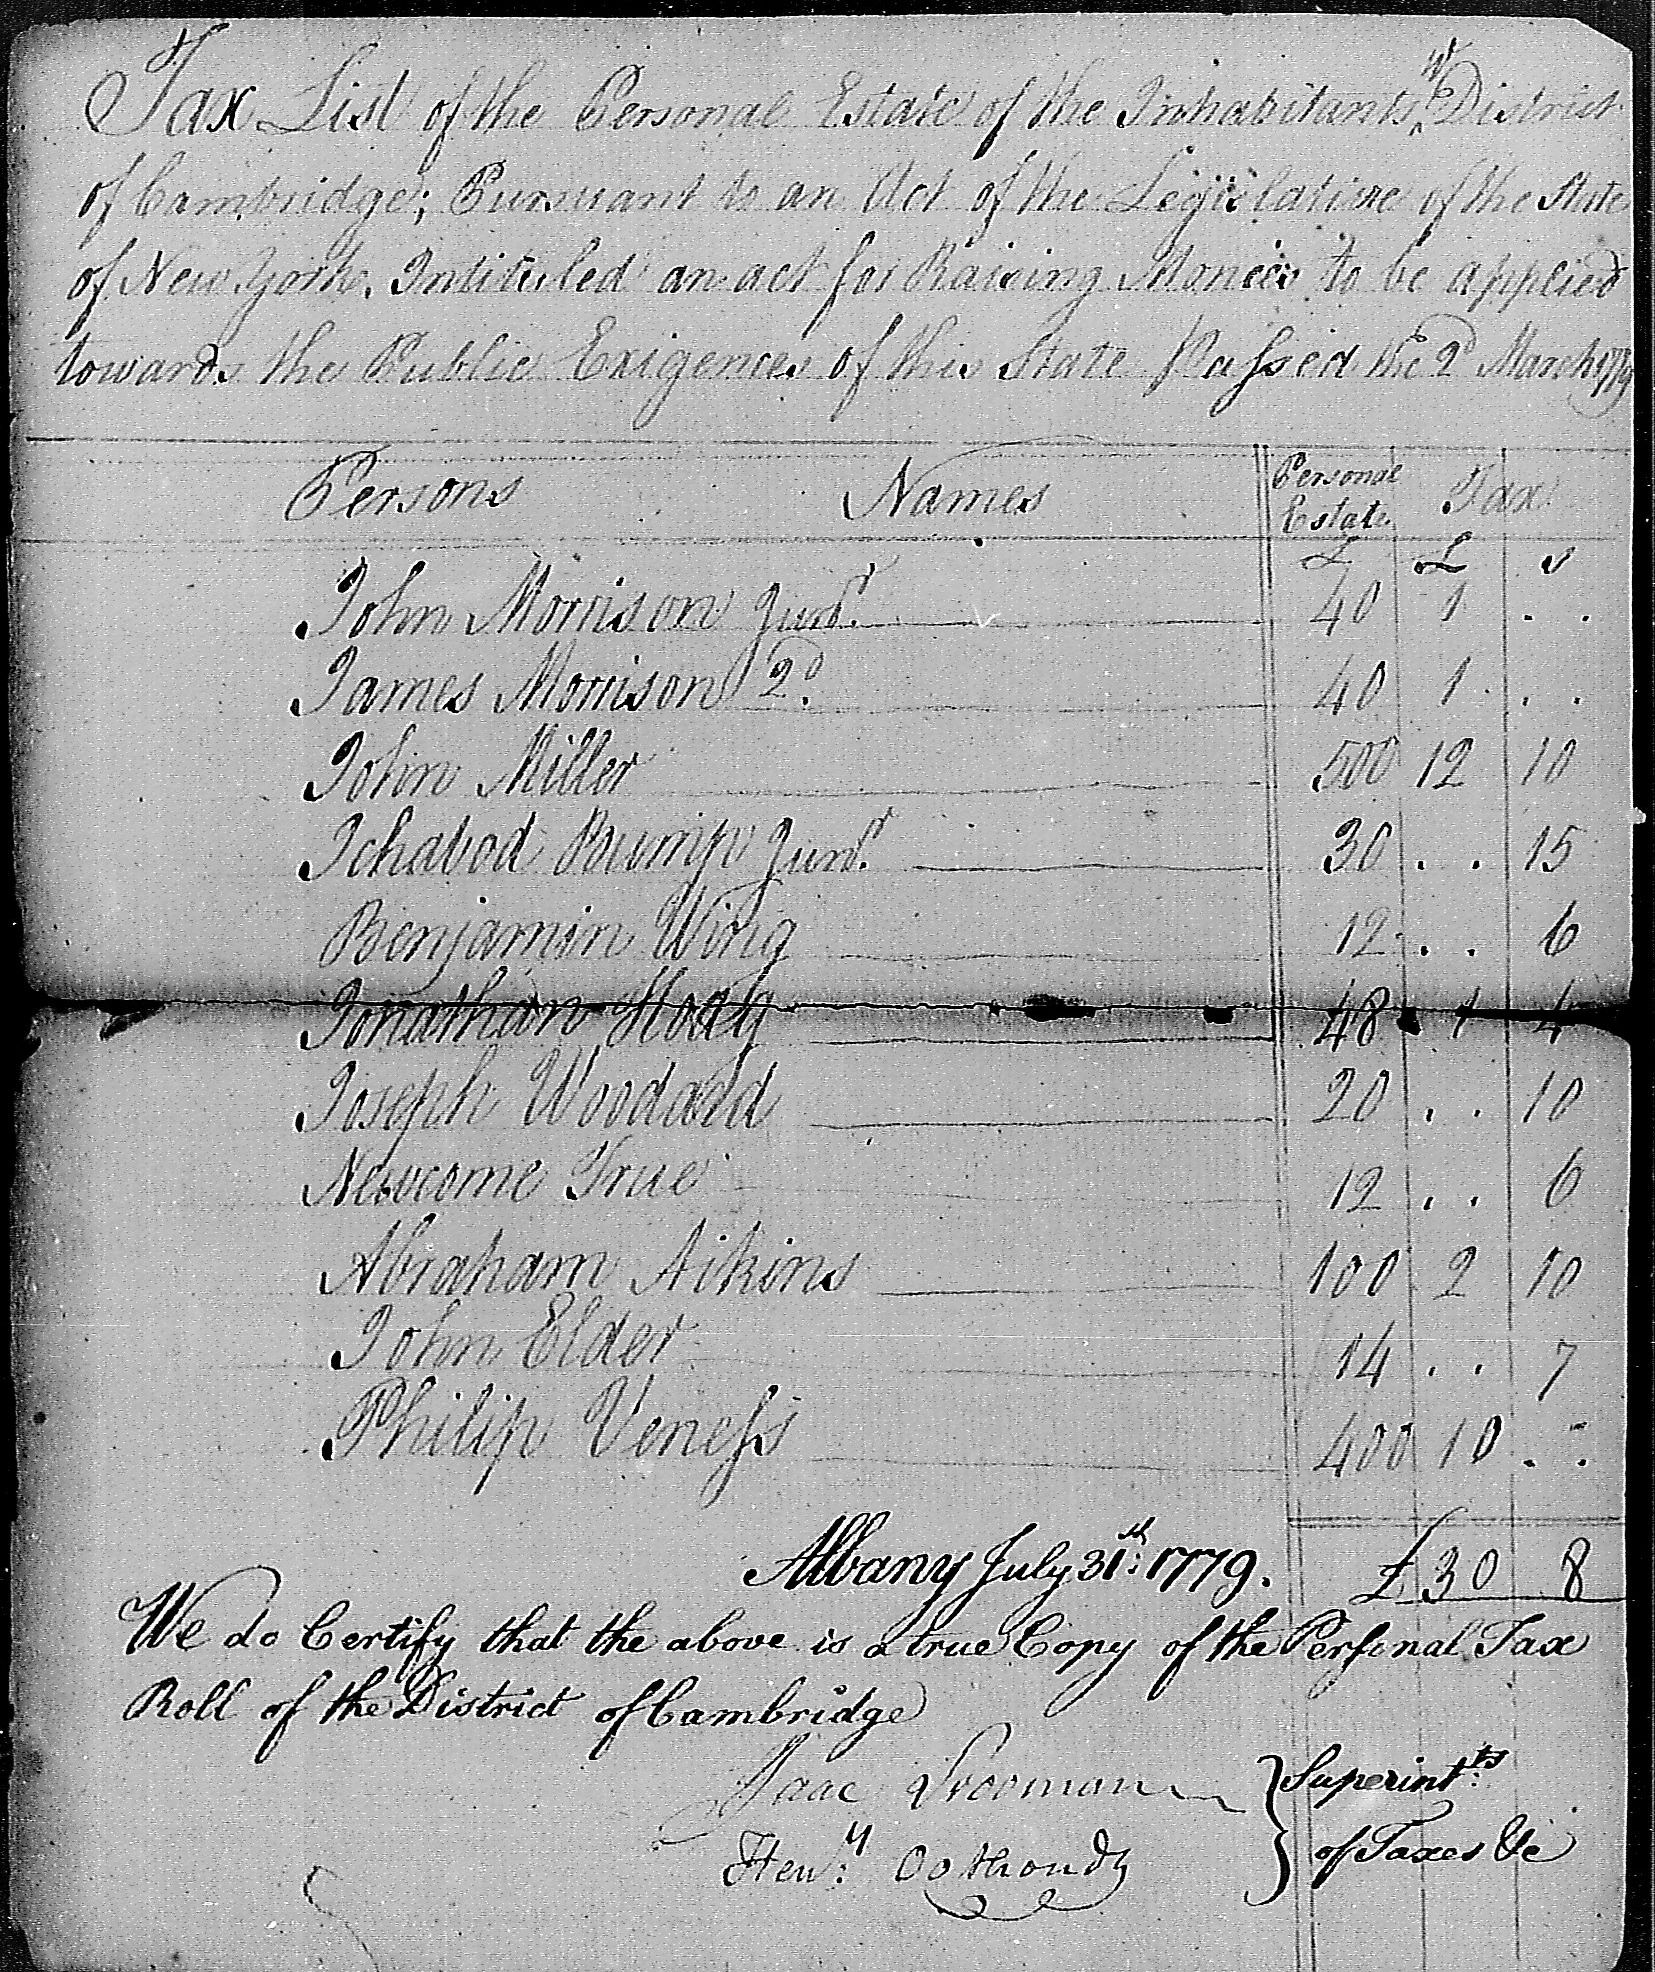 Tax List of the Personal Estate of the Inhabitants, District
of Cambridge; Pursuant to an Act of the Legislature of the State
of New York, Intituled an act for Raising Monies to be applied
towards the Public Exigences of this State Passed the 2d March 1779
Persons Names Personal Estate Tax
£ £ s
John Morrison Junr. 40 1 . .
James Morrison 2d. 40 1 . .
John Miller 500 12 10
Ichabod Bump Junr. 30 . . 15
Benjamin Wing 12 . . 6
Jonathan Hody 48 1 4
Joseph Woodard 20 . . 10
Newcome True 12 . . 6
Abraham Aikins 100 2 10
John Elder 14 . . 7
Philip Veness 400 10 . .
Albany July 31st: 1779. £ 30 8
We do Certify that the above is a true Copy of the Personal Tax
Roll of the District of Cambridge
Isaac Vrooman } Superintts:
Heny: Oothoudt } of Taxes &c